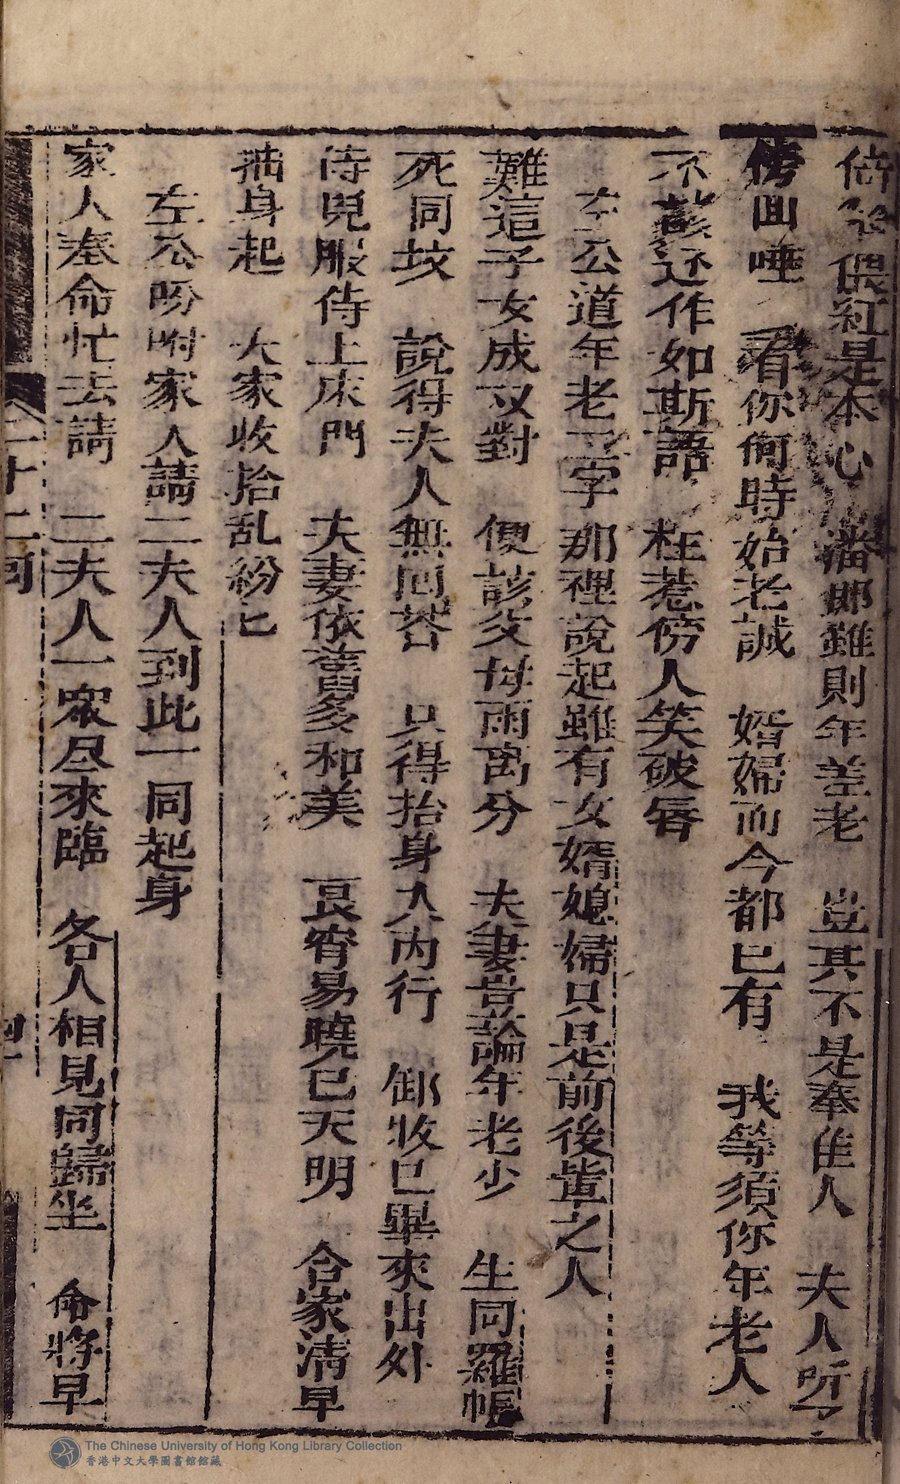 倚翠偎紅是本心 潘郎雖則年差老 豈其不是奉佳人 夫人听了
傍面唾 看你何時始老誠 婿婦而今都已有 我等須你年老人
不該还作如斯語 枉惹傍人笑破唇
左公道年老二字那裡說起雖有女婿媳婦只是前後輩之人
難這子女成双對 便該父母兩离分 夫妻豈論年老少 生同羅帳
死同坟 說得夫人無回答 只得抬身入内行 卸妝已畢來出外
侍兒服侍上床門 夫妻依舊多和美 良宵易曉已天明 合家清早
抽身起 大家收拾乱紛匕
左公吩咐家人請二夫人到此一同起身
家人奉命忙去請 二夫人一衆尽來臨 各人相見同歸坐 命將早
二十二回
The Chinese University of Hong Kong Library Collection
香港中文大學圖書館館藏